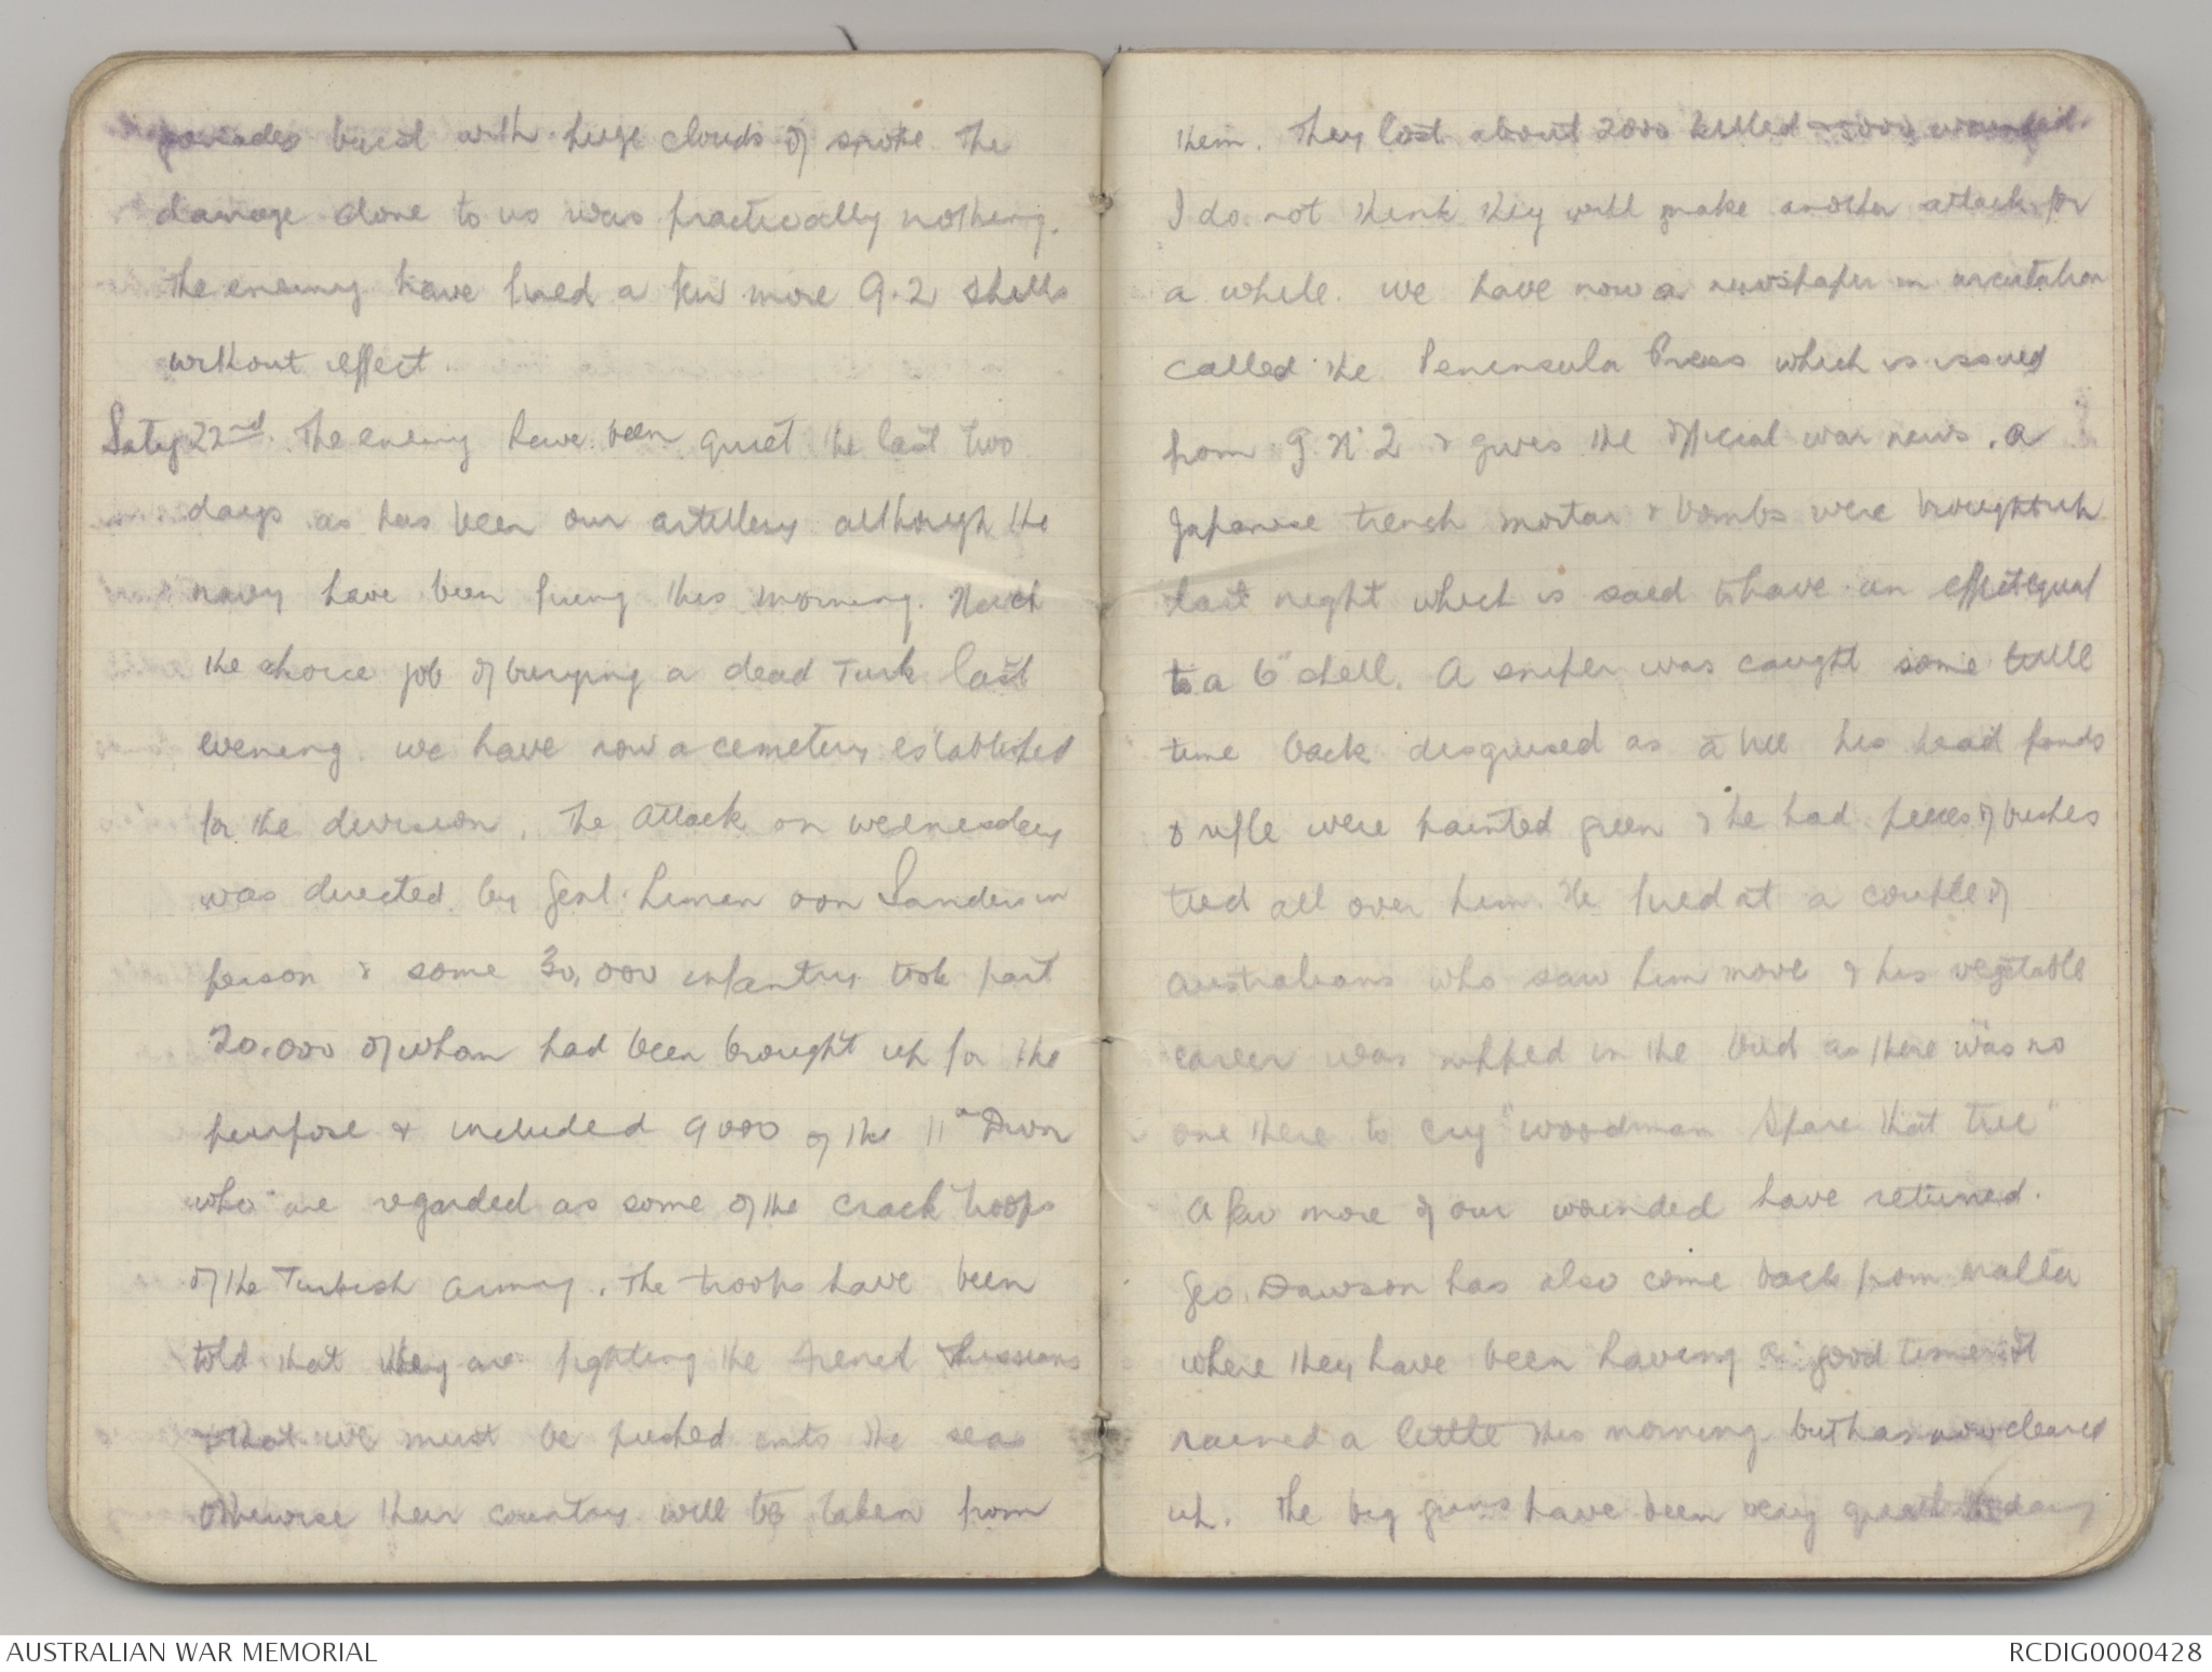 grenades burst with huge clouds of smoke. The
damage done to us was practically nothing.
The enemy have fired a few more 9.2 shells
without effect.
Saty 22nd. The enemy have been quiet the last two
days as has been our artillery although the
navy have been firing this morning. Had
the choice job of burying a dead Turk last
evening. We have now a cemetery established
for the division. The attack on Wednesday
was directed by Genl. Liman von Sanders in
person & some 30,000 infantry took part
20.000 of whom had been brought up for the
purpose & included 9000 of the 11th Divn
who are regarded as some of the crack troops
of the Turkish army. The troops have been
told that they are fighting the French Russians
& that we must be pushed into the sea
otherwise their country will be taken from
them. They lost about 2000 killed 5000 wounded.
I do not think they will make another attack for
a while. We have now a newspaper in circulation
called the Peninsula Press which is issued
from G H Q & gives the official war news. A
Japanese trench mortar & bombs were brought up
last night which is said to have an effect equal
to a 6" shell. A sniper was caught some little
time back disguised as a tree his head hands
& rifle were painted green & he had pieces of bushes
tied all over him. He fired at a couple of
Australians who saw him move & his vegetable
career was nipped in the bud as there was no
one there to cry "woodman Spare that tree"
A few more of our wounded have returned.
Geo. Dawson has also come back from Malta
where they have been having a good time. It
rained a little this morning but has now cleared
up. The big guns have been very quiet today